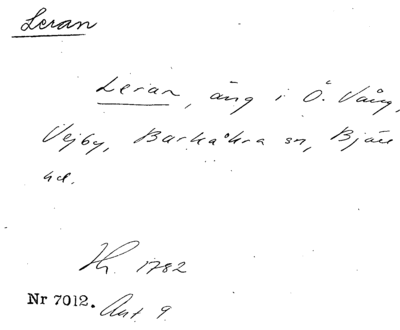 Leran
Leran, äng i Ö. Vång,
Vejby, Barkåkra sn, Bjäre
hd.
Hr. 1782
Nr 7012. Akt 9